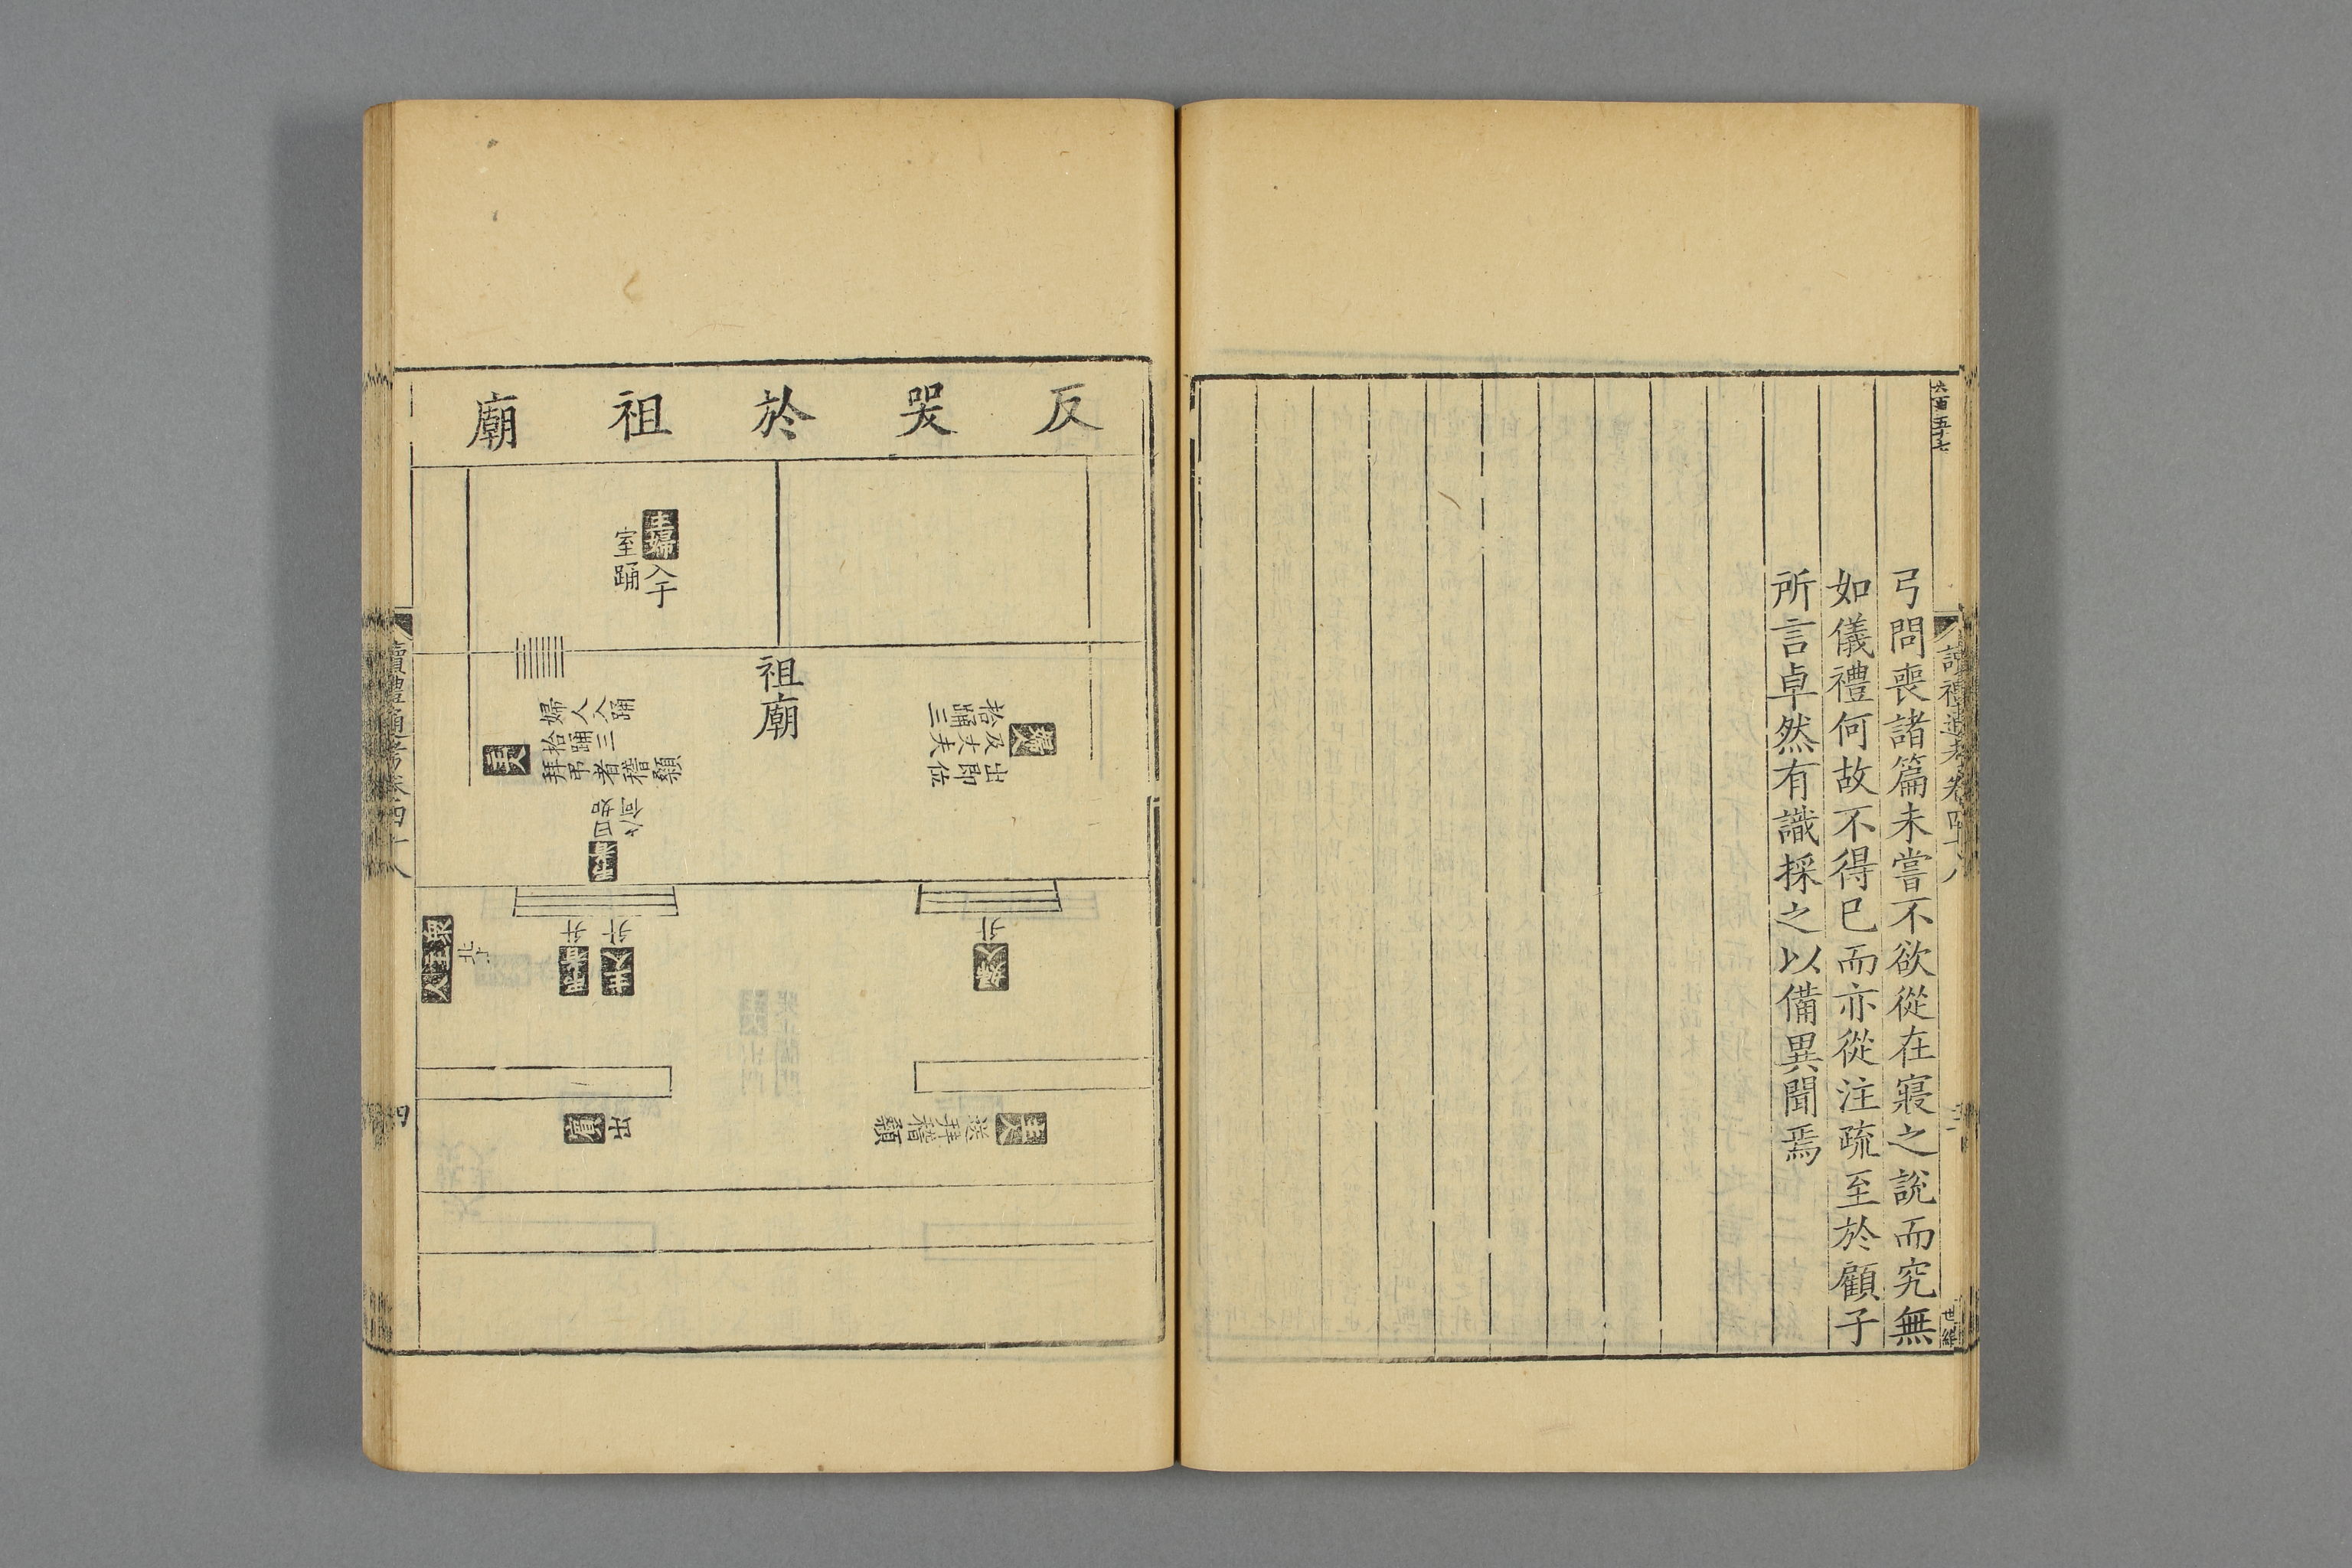 弓問喪諸篇未嘗不欲從在寢之說而究無
如儀禮何故不得已而亦從注疏至於顧子
所言卓然有識採之以備異聞焉
六百五十七
讀禮通考卷四十八
世繼
反哭於祖廟
主婦入于
室踊
祖廟
婦人
出即位
及丈夫
拾踊三
婦人入踊
拾踊三
拜弔者稽顙
主人
弔者
曰如
之何
婦人
升
主人
升
弔者
升
衆主人
北上
主人
送拜稽顙
賓
出
讀禮通考卷四十八
四